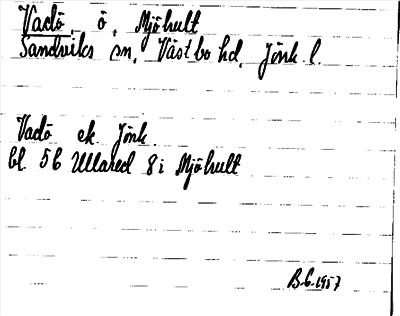 Vadö, ö, Mjöhult
Sandviks sn, Västbo hd, Jönk. l.
Vadö ek. Jönk.
bl. 5C Ullared 8 i Mjöhult
B.G. 1957